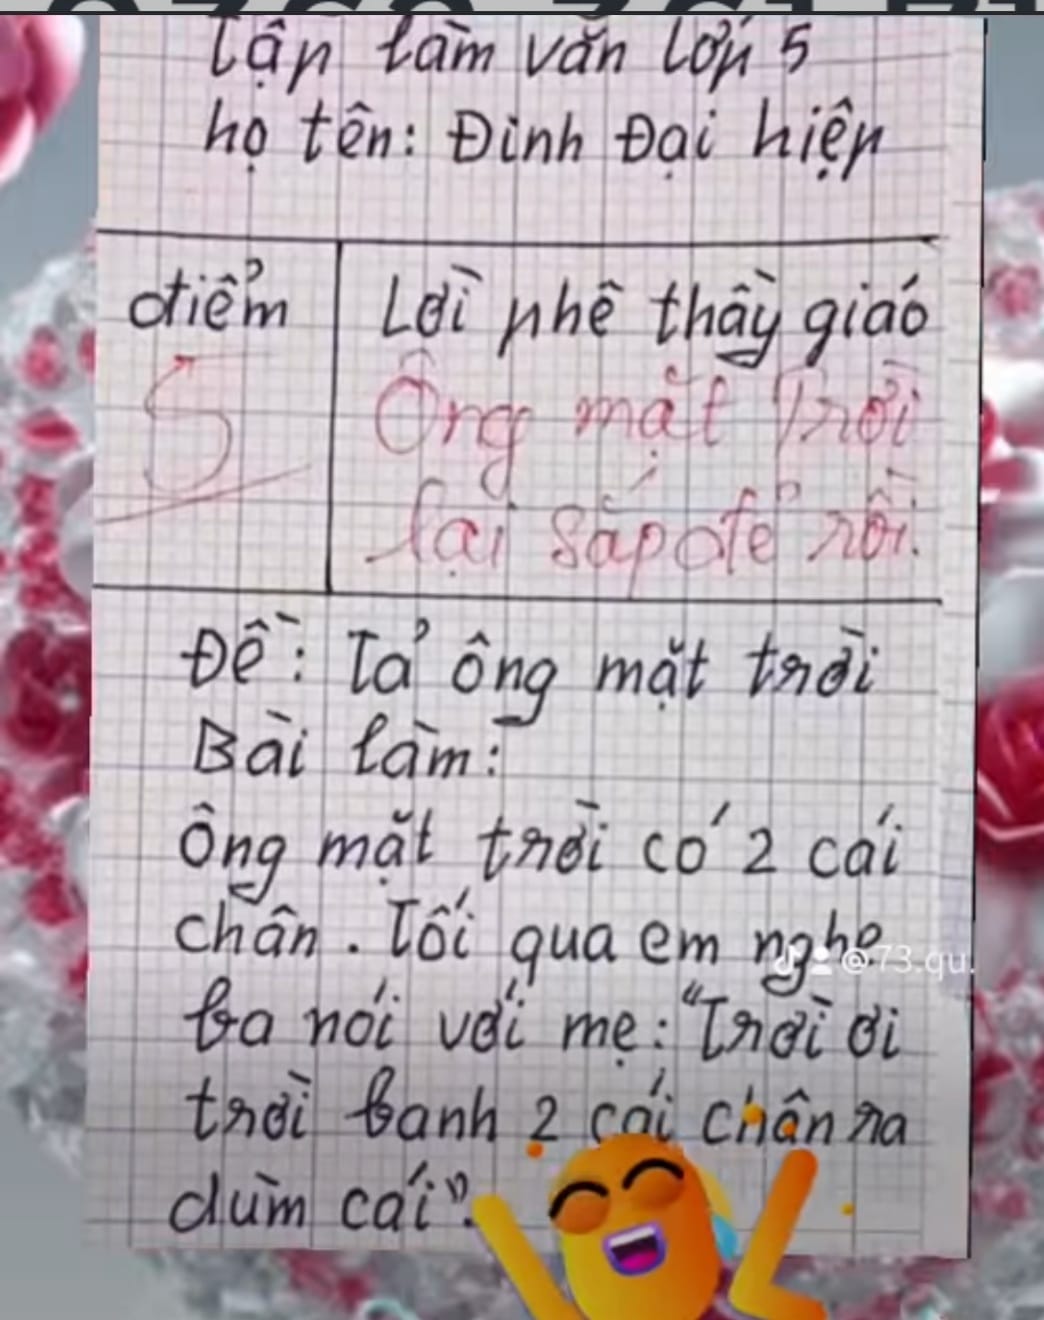 Tập làm văn lớp 5
họ tên: Đinh Đại hiệp
điểm
5
Lời phê thầy giáo
Ông mặt Trời
lại sắp đẻ rồi.
Đề: Tả ông mặt trời
Bài làm:
Ông mặt trời có 2 cái
chân. Tối qua em nghe
ba nói với mẹ: "Trời ơi
trời banh 2 cái chân ra
dùm cái".
@73.qu.